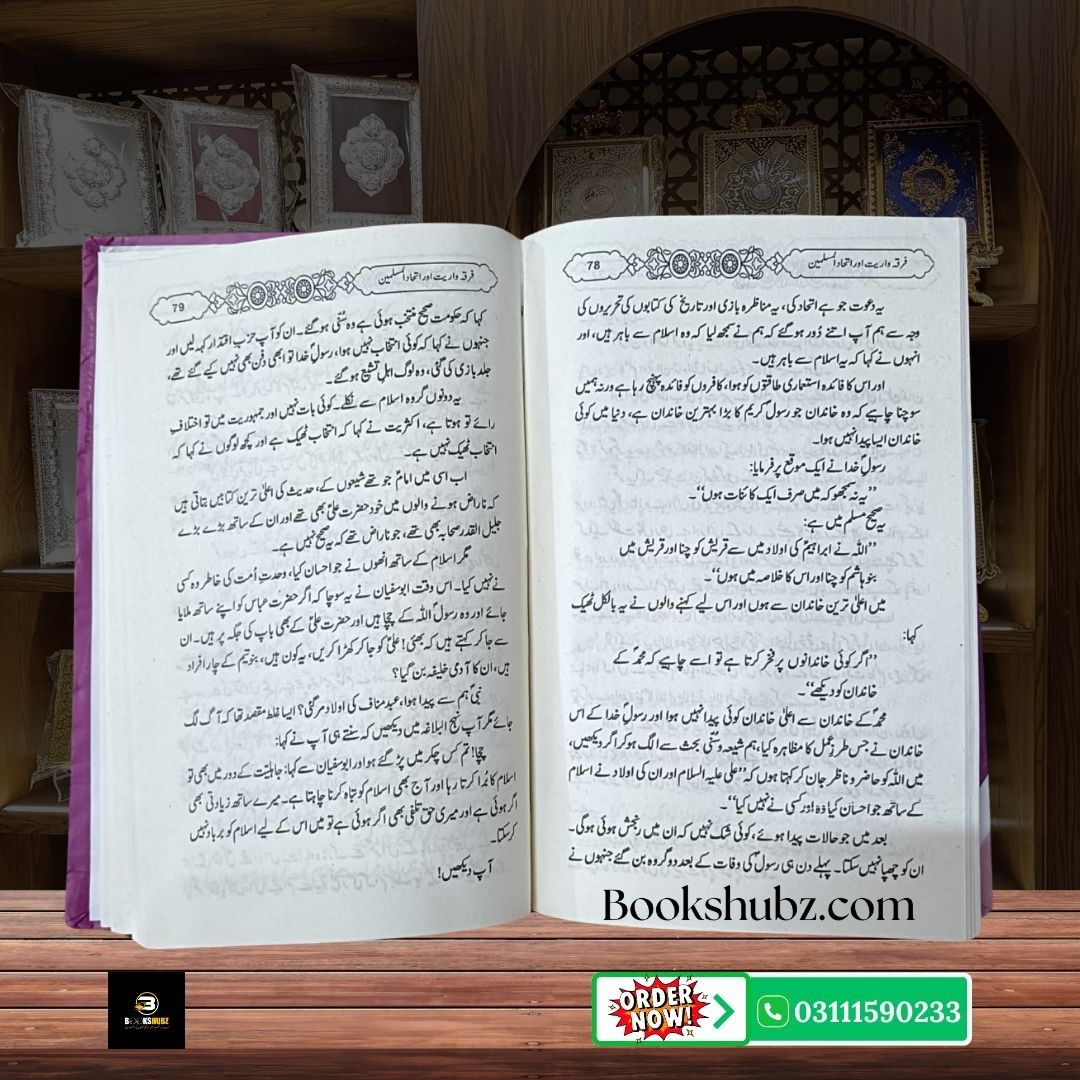 78
فرقہ واریت اور اتحاد المسلمین
یہ دعوت جو ہے اتحاد کی، یہ مناظرہ بازی اور تاریخ کی کتابوں کی تحریروں کی
وجہ سے ہم آپ اتنے دُور ہوگئے کہ ہم نے سمجھ لیا کہ وہ اسلام سے باہر ہیں، اور
انہوں نے کہا کہ یہ اسلام سے باہر ہیں۔
اور اس کا فائدہ استعماری طاقتوں کو ہوا، کافروں کو فائدہ پہنچ رہا ہے ورنہ ہمیں
سوچنا چاہیے کہ وہ خاندان جو رسول کریم کا بڑا بہترین خاندان ہے، دنیا میں کوئی
خاندان ایسا پیدا نہیں ہوا۔
رسولِ خدا نے ایک موقع پر فرمایا:
”یہ نہ سمجھو کہ میں صرف ایک کائنات ہوں“۔
یہ صحیح مسلم میں ہے:
”اللہ نے ابراہیمؑ کی اولاد میں سے قریش کو چنا اور قریش میں
بنو ہاشم کو چنا اور اس کا خلاصہ میں ہوں“۔
میں اعلیٰ ترین خاندان سے ہوں اور اس لیے کہنے والوں نے یہ بالکل ٹھیک
کہا:
”اگر کوئی خاندانوں پر فخر کرتا ہے تو اسے چاہیے کہ محمدؐ کے
خاندان کو دیکھے“۔
محمدؐ کے خاندان سے اعلیٰ خاندان کوئی پیدا نہیں ہوا اور رسولِ خدا کے اس
خاندان نے جس طرزِ عمل کا مظاہرہ کیا، ہم شیعہ وسُنّی بحث سے الگ ہوکر اگر دیکھیں،
میں اللہ کو حاضر و ناظر جان کر کہتا ہوں کہ ”علی علیہ السلام اور ان کی اولاد نے اسلام
کے ساتھ جو احسان کیا وہ اور کسی نے نہیں کیا“۔
بعد میں جو حالات پیدا ہوئے، کوئی شک نہیں کہ ان میں رنجش ہوئی ہوگی۔
ان کو چھپا نہیں سکتا۔ پہلے دن ہی رسول کی وفات کے بعد دو گروہ بن گئے جنہوں نے
79
فرقہ واریت اور اتحاد المسلمین
کہا کہ حکومت صحیح منتخب ہوئی ہے وہ سُنّی ہوگئے۔ ان کو آپ حزبِ اقتدار کہہ لیں اور
جنہوں نے کہا کہ کوئی انتخاب نہیں ہوا، رسولِ خدا تو ابھی دفن بھی نہیں کیے گئے تھے،
جلد بازی کی گئی، وہ لوگ اہلِ تشیع ہوگئے۔
یہ دونوں گروہ اسلام سے نکلے۔ کوئی بات نہیں اور جمہوریت میں تو اختلافِ
رائے تو ہوتا ہے، اکثریت نے کہا کہ انتخاب ٹھیک ہے اور کچھ لوگوں نے کہا کہ
انتخاب ٹھیک نہیں ہے۔
اب اسی میں امامؑ جو تھے شیعوں کے، حدیث کی اعلیٰ ترین کتابیں بتاتی ہیں
کہ ناراض ہونے والوں میں خود حضرت علیؑ بھی تھے اور ان کے ساتھ بڑے بڑے
جلیل القدر صحابہ بھی تھے، جو ناراض تھے کہ یہ صحیح نہیں ہے۔
مگر اسلام کے ساتھ انھوں نے جو احسان کیا، وحدتِ اُمت کی خاطر وہ کسی
نے نہیں کیا۔ اس وقت ابوسفیان نے یہ سوچا کہ اگر حضرت عباس کو اپنے ساتھ ملایا
جائے اور وہ رسول اللہ کے چچا ہیں اور حضرت علیؑ کے بھی باپ کی جگہ پر ہیں۔ ان
سے جا کر کہتے ہیں کہ بھئی! علیؑ کو جا کر کھڑا کریں، یہ کون ہیں، بنو تیم کے چار افراد
ہیں، ان کا آدمی خلیفہ بن گیا؟
نبیؐ ہم سے پیدا ہوا، عبد مناف کی اولاد مرگئی؟ ایسا غلط مقصد تھا کہ آگ لگ
جائے مگر آپ نہج البلاغہ میں دیکھیں کہ سنتے ہی آپ نے کہا:
چچا! تم کس چکر میں پڑ گئے ہو اور ابوسفیان سے کہا: جاہلیت کے دور میں بھی تو
اسلام کا بُرا کرتا رہا اور آج بھی اسلام کو تباہ کرنا چاہتا ہے۔ میرے ساتھ زیادتی بھی
اگر ہوئی ہے اور میری حق تلفی بھی اگر ہوئی ہے تو میں اس کے لیے اسلام کو برباد نہیں
کرسکتا۔
آپ دیکھیں!
Bookshubz.com
BOOKSHUBZ
ORDER
NOW!
03111590233